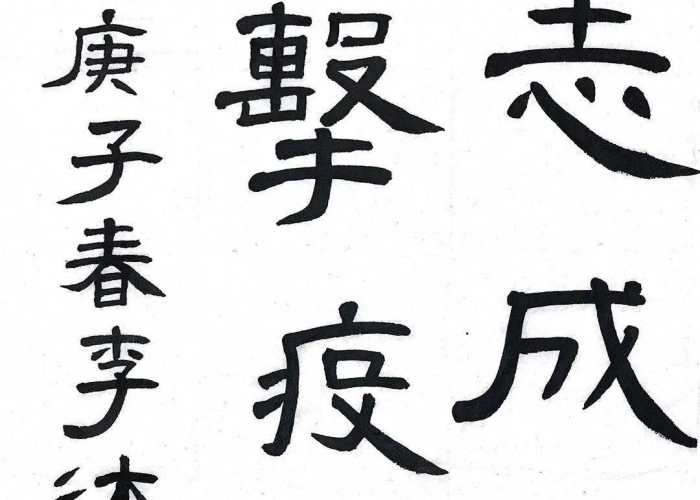 志成
擊疫
庚子春李